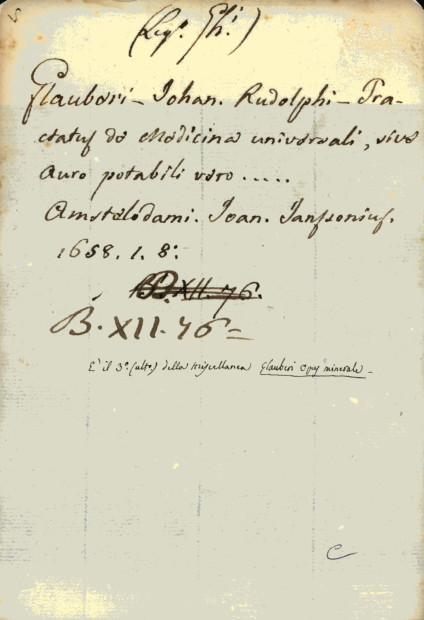 (Leg. Gh.)
Glauberi - Johan. Rudolphi - Tra-
ctatus de Medicina universali, sive
Auro potabili vero .....
Amstelodami. Joan. Janssonius.
1658. 1. 8.
B. XII. 76.
B. XII. 76 =
E' il 3º (ulto.) della Miscellanea Glauberi Opus minerale -
C